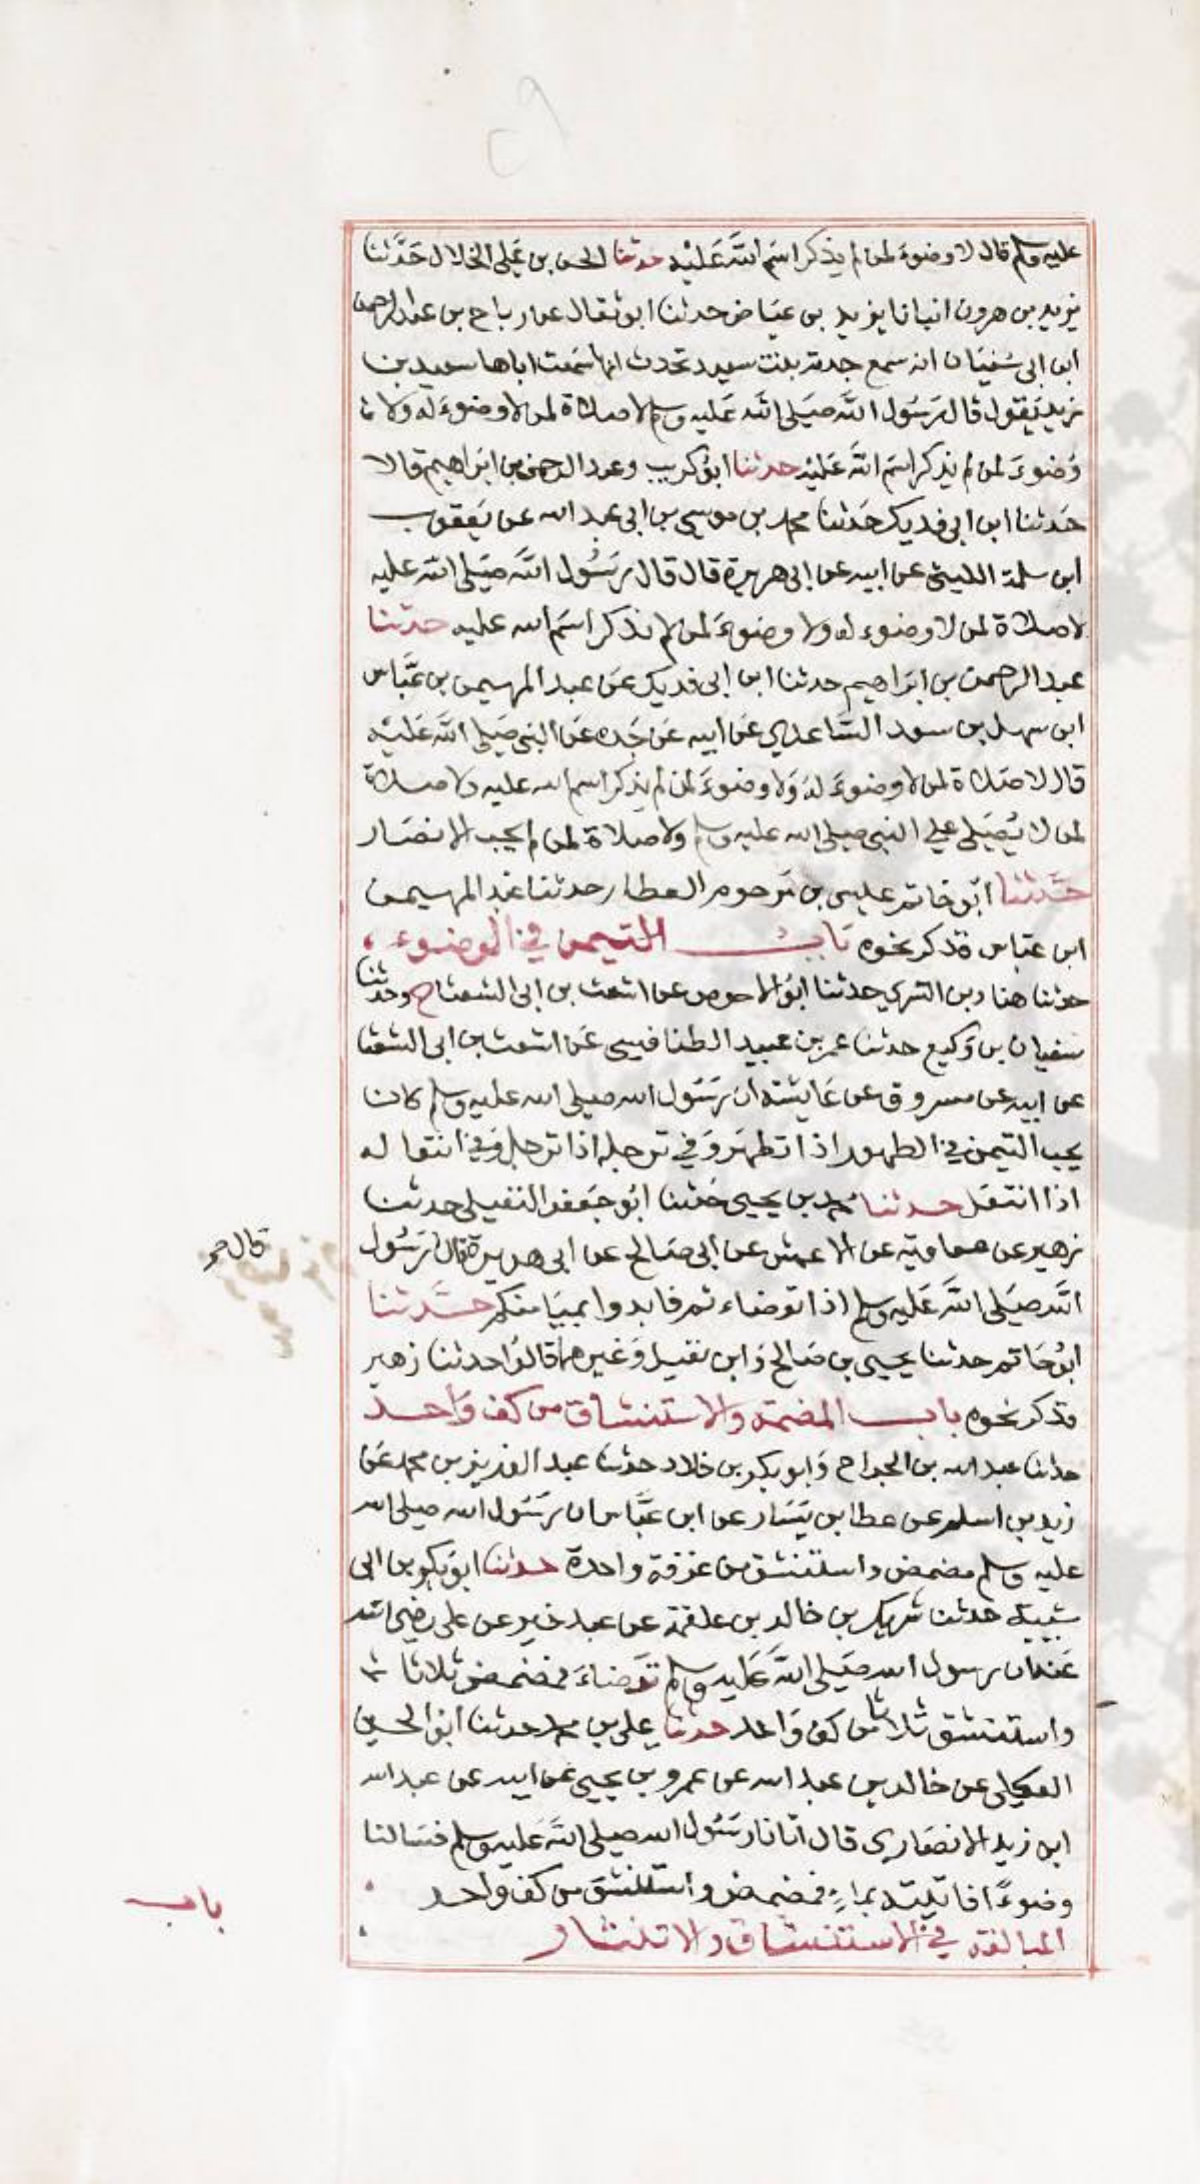 ٢٩
عليه وسلم قال لا وضوء لمن لم يذكر اسم الله عليه حدثنا الحسن بن علي الخلال حدثنا
يزيد بن هرون انبانا يزيد بن عياض حدثنا ابو ثفال عن رباح بن عبد الرحمن
ابن ابي سفيان انه سمع جدته بنت سعيد تحدث انها سمعت اباها سعيد بن
زيد يقول قال رسول الله صلى الله عليه وسلم لا صلاة لمن لا وضوء له ولا
وضوء لمن لم يذكر اسم الله عليه حدثنا ابو كريب وعبد الرحمن بن ابراهيم قالا
حدثنا ابن ابي فديك حدثنا محمد بن موسى بن ابي عبد الله عن يعقوب
ابن سلمة الليثي عن ابيه عن ابي هريرة قال قال رسول الله صلى الله عليه
لا صلاة لمن لا وضوء له ولا وضوء لمن لم يذكر اسم الله عليه حدثنا
عبد الرحمن بن ابراهيم حدثنا ابن ابي فديك عن عبد المهيمن بن عباس
ابن سهل بن سعد الساعدي عن ابيه عن جده عن النبي صلى الله عليه
قال لا صلاة لمن لا وضوء له ولا وضوء لمن لم يذكر اسم الله عليه ولا صلاة
لمن لا يصلي على النبي صلى الله عليه وسلم ولا صلاة لمن لم يحب الانصار
حدثنا ابو حاتم عيسى بن مرحوم العطار حدثنا عبد المهيمن
ابن عباس فذكر نحوه باب التيمن في الوضوء
حدثنا هناد بن السري حدثنا ابو الاحوص عن اشعث بن ابي الشعثا ح وحدثنا
سفيان بن وكيع حدثنا عمر بن عبيد الطنافسي عن اشعث بن ابي الشعثا
عن ابيه عن مسروق عن عايشة ان رسول الله صلى الله عليه وسلم كان
يحب التيمن في الطهور اذا تطهر وفي ترجله اذا ترجل وفي انتعاله
اذا انتعل حدثنا محمد بن يحيى حدثنا ابو جعفر النفيلي حدثنا
زهير عن معاوية عن الاعمش عن ابي صالح عن ابي هريرة قال رسول
قال صح
الله صلى الله عليه وسلم اذا توضاءتم فابدوا بميامنكم حدثنا
ابو حاتم حدثنا يحيى بن صالح وابن نفيل وغيرهما قالوا حدثنا زهير
فذكر نحوه باب المضمضة والاستنشاق من كف واحد
حدثنا عبد الله بن الجراح وابو بكر بن خلاد حدثنا عبد العزيز بن محمد عن
زيد بن اسلم عن عطا بن يسار عن ابن عباس ان رسول الله صلى الله
عليه وسلم مضمض واستنشق من غرفة واحدة حدثنا ابو بكر بن ابي
شيبة حدثنا شريك بن خالد بن علقمة عن عبد خير عن علي رضي الله
عنه ان رسول الله صلى الله عليه وسلم توضاء فمضمض ثلاثا
واستنشق ثلاثا من كف واحد حدثنا علي بن محمد حدثنا ابو الحسين
العكلي عن خالد بن عبد الله عن عمرو بن يحيى عن ابيه عن عبد الله
ابن زيد الانصاري قال اتانا رسول الله صلى الله عليه وسلم فسالنا
وضوءا فاتيته بماء فمضمض واستنشق من كف واحد
باب
المبالغة في الاستنشاق والاتنثار